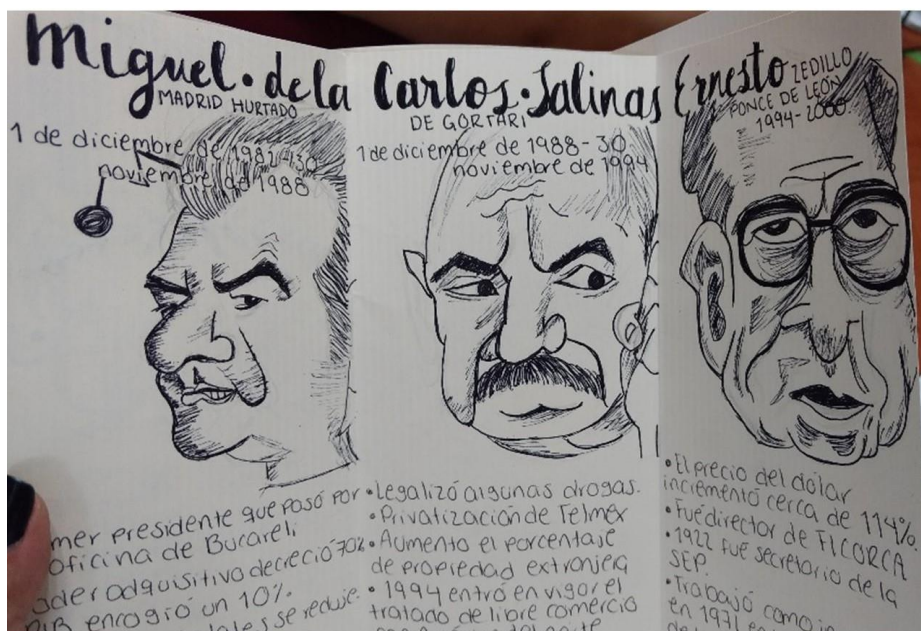 Miguel • de la
MADRID HURTADO
1 de diciembre de 1982-30
noviembre de 1988
mer presidente que pasó por
oficina de Bucareli
oder adquisitivo decreció 70%
PIB encogió un 10%.
se reduje.
Carlos • Salinas
DE GORTARI
1 de diciembre de 1988-30
noviembre de 1994
•Legalizó algunas drogas.
•Privatización de Telmex
•Aumento el porcentaje
de propiedad extronjera
• 1994 entró en vigor el
tratado de libre comercio
Ernesto ZEDILLO
PONCE DE LEÓN
1994-2000.
•El precio del dólar
incrementó cerca de 114%
•Fué director de FICORCA
•1922 fue secretario de la
SEP.
•Trabajó como
en 1971